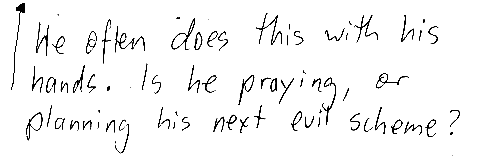 He often does this with his
hands. Is he praying, or
planning his next evil scheme?